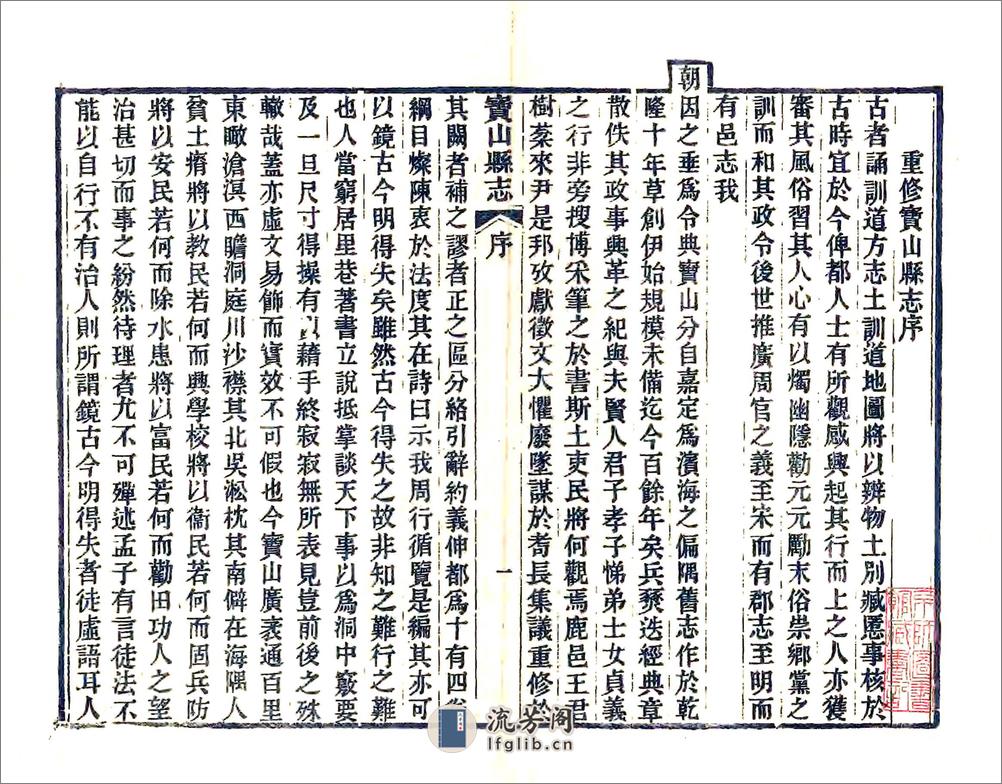 重修寶山縣志序
古者誦訓道方志土訓道地圖將以辨物土別臧慝事核於
古時宜於今俾都人士有所觀感興起其行而上之人亦獲
審其風俗習其人心有以燭幽隱勸元元勵末俗崇鄉黨之
訓而和其政令後世推廣周官之義至宋而有郡志至明而
有邑志我
朝因之垂為令典寶山分自嘉定為濱海之偏隅舊志作於乾
隆十年草創伊始規模未備迄今百餘年矣兵燹迭經典章
散佚其政事興革之紀與夫賢人君子孝子悌弟士女貞義
之行非旁搜博采筆之於書斯土吏民將何觀焉鹿邑王君
樹棻來尹是邦攷獻徵文大懼廢墜謀於耆長集議重修於
寶山縣志
序
一
其闕者補之謬者正之區分絡引辭約義伸都為十有四卷
綱目燦陳衷於法度其在詩曰示我周行循覽是編其亦可
以鏡古今明得失矣雖然古今得失之故非知之難行之難
也人當窮居里巷著書立說抵掌談天下事以為洞中窾要
及一旦尺寸得操有以藉手終寂寂無所表見豈前後之殊
轍哉蓋亦虛文易飾而實效不可假也今寶山廣袤通百里
東瞰滄溟西瞻洞庭川沙襟其北吳淞枕其南僻在海隅人
貧土瘠將以教民若何而興學校將以衞民若何而固兵防
將以安民若何而除水患將以富民若何而勸田功人之望
治甚切而事之紛然待理者尤不可殫述孟子有言徒法不
能以自行不有治人則所謂鏡古今明得失者徒虛語耳人
流芳阁
lfglib.cn